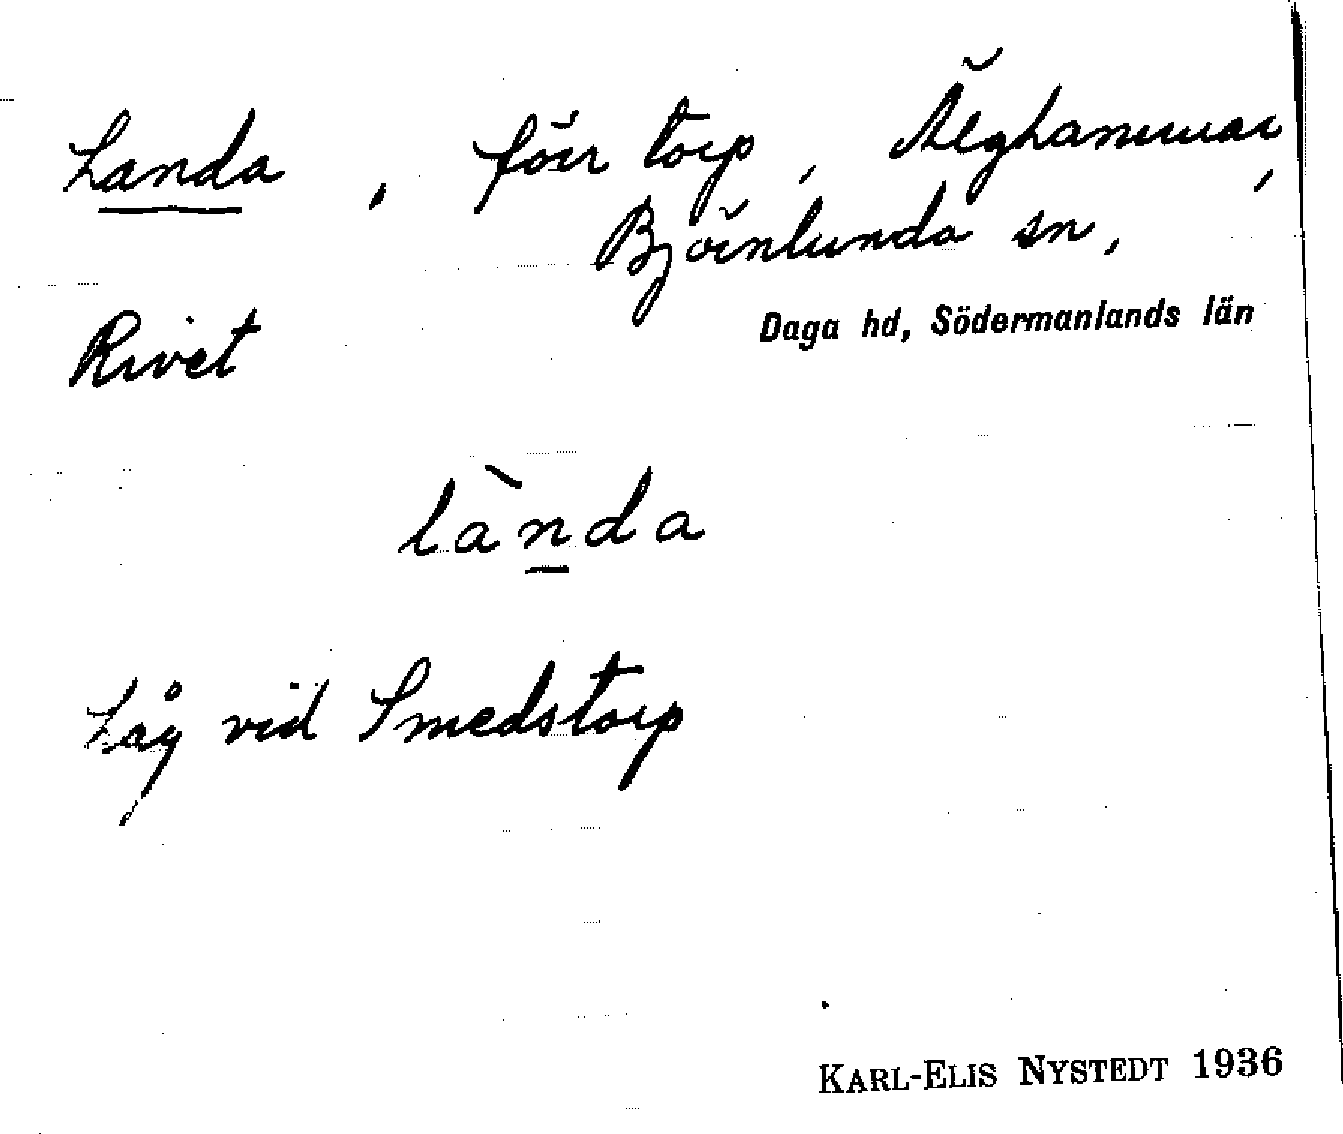 Landa, förr torp, Älghammar,
Björnlunda sn,
Daga hd, Södermanlands län
Rivet
lànda
Låg vid Smedstorp
KARL-ELIS NYSTEDT 1936